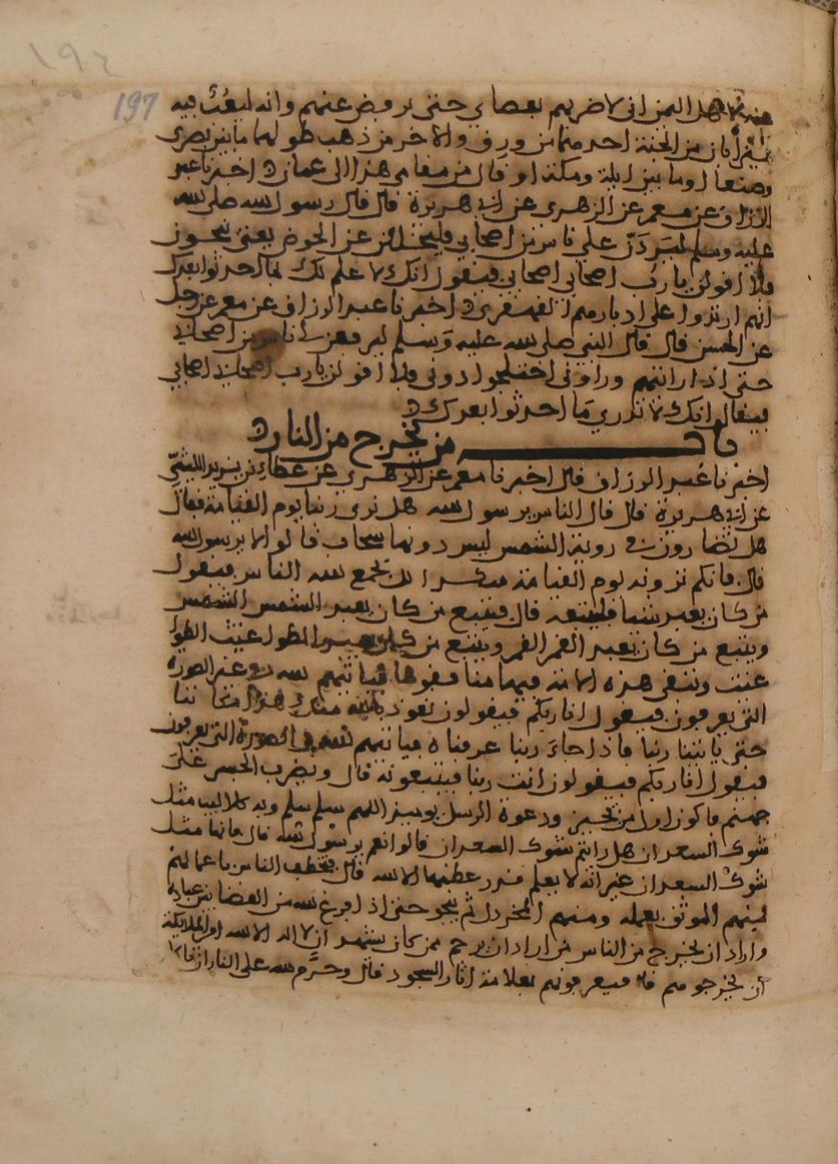 ١٩٤
197
عنه لاهل اليمن اني لاضربهم بعصاي حتى يرفض عنهم وانه ليغت فيه
ميزابان من الجنة احدهما من ورق والاخر من ذهب طولهما ما بين بصرى
وصنعا او ما بين ايلة ومكة او قال من مقامي هذا الى عمان اخبرنا عبد
الرزاق عن معمر عن الزهري عن ابي هريرة قال قال رسول الله صلى الله
عليه وسلم ليردن علي ناس من اصحابي فليحلان عن الحوض يعني ينحون
فلا اقولن يا رب اصحابي اصحابي فيقول انك لا علم لك بما احدثوا بعدك
انهم ارتدوا على ادبارهم القهقرى اخبرنا عبد الرزاق عن معمر عن رجل
عن الحسن قال قال النبي صلى الله عليه وسلم ليرفعن لي اناس من اصحابي
حتى اذا رايتهم وراوني اختلجوا دوني فلا اقولن يا رب اصحابي اصحابي
فيقال انك لا تدري ما احدثوا بعدك
باب من يخرج من النار
اخبرنا عبد الرزاق قال اخبرنا معمر عن الزهري عن عطاء بن يزيد الليثي
عن ابي هريرة قال قال الناس يرسول الله هل نرى ربنا يوم القيامة فقال
هل تضارون في روية الشمس ليس دونها سحاب قالوا لا يرسول الله
قال فانكم ترونه يوم القيامة يجمع الله الناس فيقول
من كان يعبد شيا فليتبعه قال فيتبع من كان يعبد الشمس الشمس
ويتبع من كان يعبد القمر القمر ويتبع من كان يعبد الطواغيت الطوا
غيت وتبقى هذه الامة فيها منافقوها فياتيهم الله في غير الصورة
التي يعرفون فيقول انا ربكم فيقولون نعوذ بالله منك هذا مكاننا
حتى ياتينا ربنا فاذا جاء ربنا عرفناه فياتيهم الله في الصورة التي يعرفون
فيقول انا ربكم فيقولون انت ربنا فيتبعونه قال ويضرب الجسر على
جهنم فاكون اول من يجيز ودعوة الرسل يوميذ اللهم سلم سلم وبه كلاليب مثل
شوك السعدان هل رايتم شوك السعدان قالوا نعم يرسول الله قال فانها مثل
شوك السعدان غير انه لا يعلم قدر عظمها الا الله قال فتخطف الناس باعمالهم
فمنهم الموبق بعمله ومنهم المخردل ثم ينجو حتى اذا فرغ الله من القضا بين عباده
واراد ان يخرج من الناس من اراد ان يرحم ممن كان يشهد ان لا اله الا الله امر الملايكة
ان يخرجوهم قال فيعرفونهم بعلامة اثار السجود قال وحرم الله على النار ان تاكل